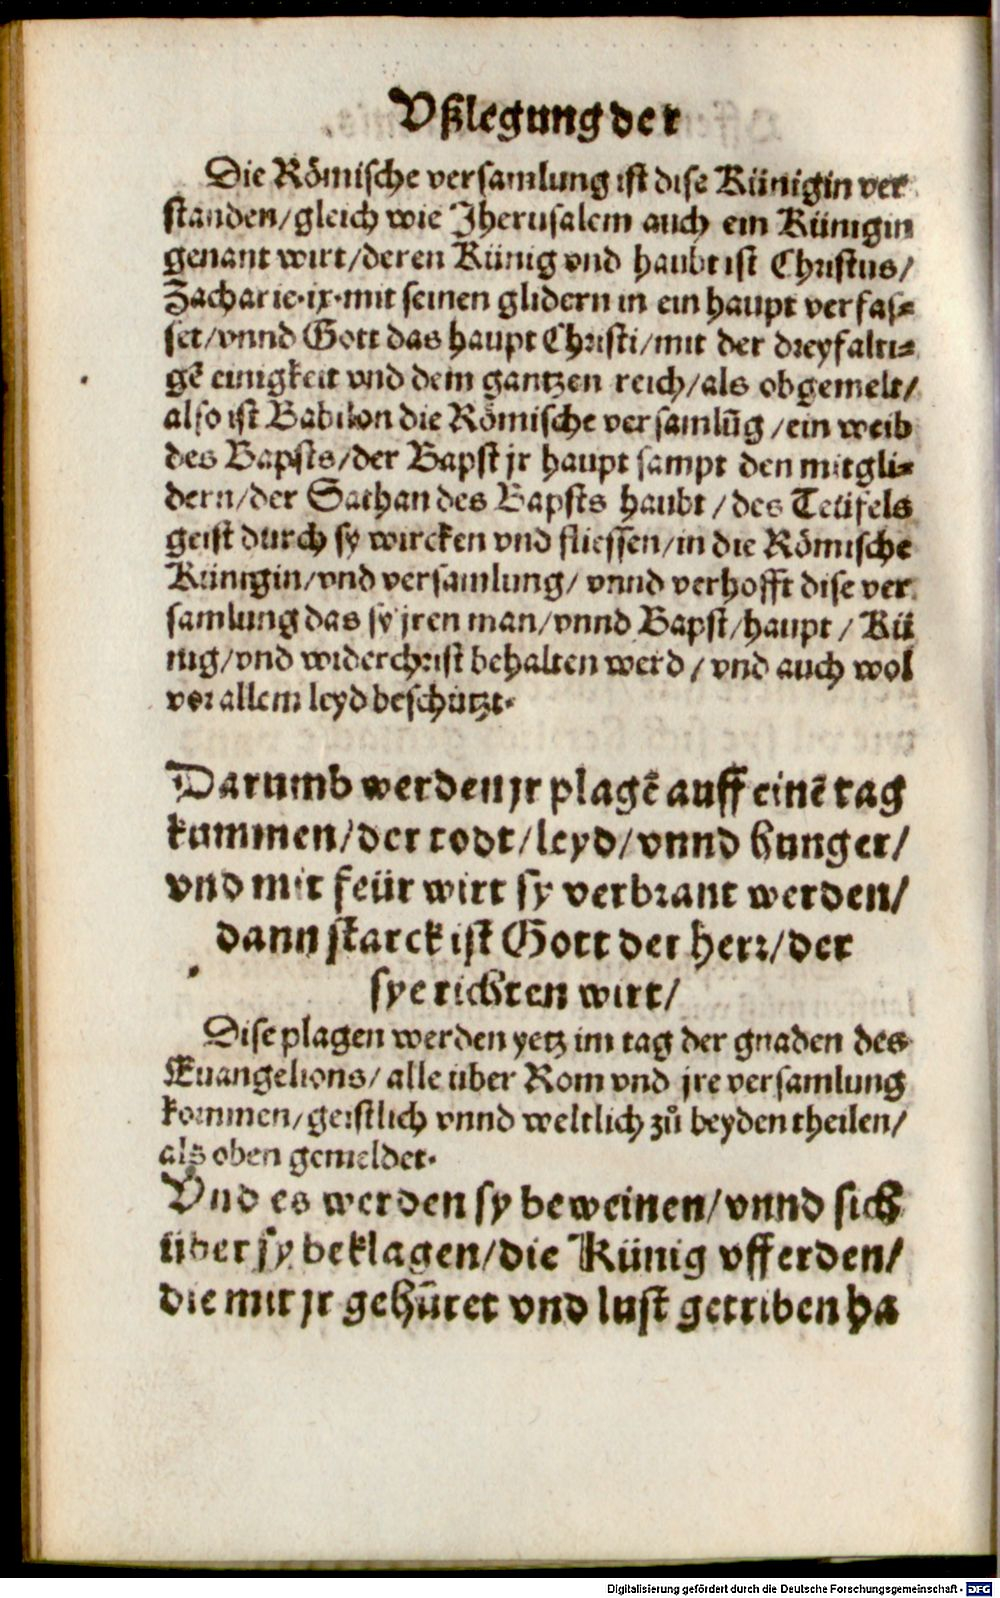 Vßlegung der
Die Römische versamlung ist dise Künigin ver
standen/gleich wie Jherusalem auch ein Künigin
genant wirt/deren Künig vnd haubt ist Christus/
Zacharie·ix·mit seinen glidern in ein haupt verfas⸗
set/vnnd Gott das haupt Christi/mit der dreyfalti⸗
gē einigkeit vnd dem gantzen reich/als obgemelt/
also ist Babilon die Römische versamlūg/ein weib
des Bapsts/der Bapst jr haupt sampt den mitgli⸗
dern/der Sathan des Bapsts haubt/des Teüfels
geist durch sy wircken vnd fliessen/in die Römische
Künigin/vnd versamlung/vnnd verhofft dise ver
samlung das sy jren man/vnnd Bapst/haupt/Kü
nig/vnd widerchrist behalten werd/vnd auch wol
vor allem leyd beschützt·
Darumb werden jr plagē auff einē tag
kummen/der todt/leyd/vnnd hunger/
vnd mit feür wirt sy verbrant werden/
dann starck ist Gott der herr/der
sye richten wirt/
Dise plagen werden yetz im tag der gnaden des
Euangelions/alle über Rom vnd jre versamlung
kommen/geistlich vnnd weltlich zů beyden theilen/
als oben gemeldet·
Vnd es werden sy beweinen/vnnd sich
über sy beklagen/die Künig vff erden/
die mit jr gehůret vnd lust getriben ha
Digitalisierung gefördert durch die Deutsche Forschungsgemeinschaft - DFG